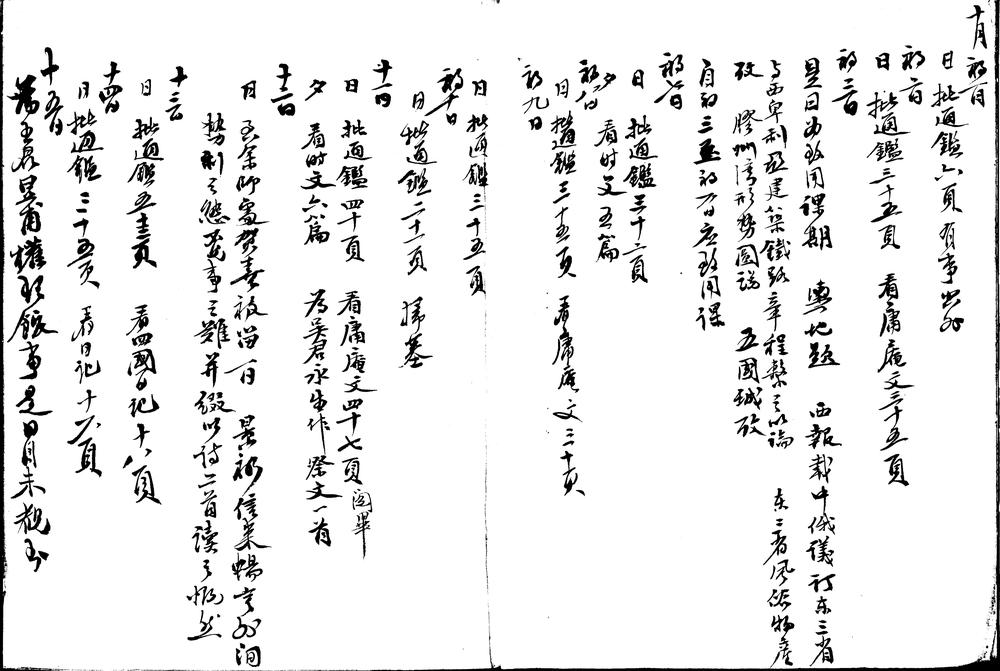 十月
初一日
日 批通鑑六頁 有事出外
初二日
日 批通鑑三十五頁 看庸庵文三十五頁
初三日
是日為致用課期 輿地題 西報載中俄議訂東三省
與西卑利亞建築鐵路章程繫之以論 東三省風俗物產
攷 膠州灣形勢圖說 五國城攷
自初三至初六日應致用課
初七日
日 批通鑑三十二頁
夕 看時文五篇
初八日
日 批通鑑三十五頁 看庸庵文三十頁
初九日
日 批通鑑三十五頁
初十日
日 批通鑑二十一頁 掃墓
十一日
日 批通鑑四十頁 看庸庵文四十七頁 閱畢
夕 看時文六篇 為吳君永生作祭文一首
十二日
日 至余師處賀壽被留一日 景初信來暢言外洞
勢利之態 萬事之難 并綴以詩二首讀之慨然
十三日
日 批通鑑五十三頁 看四國日記十八頁
十四日
日 批通鑑三十五頁 看日記十六頁
十五日
為 是日目未觀書